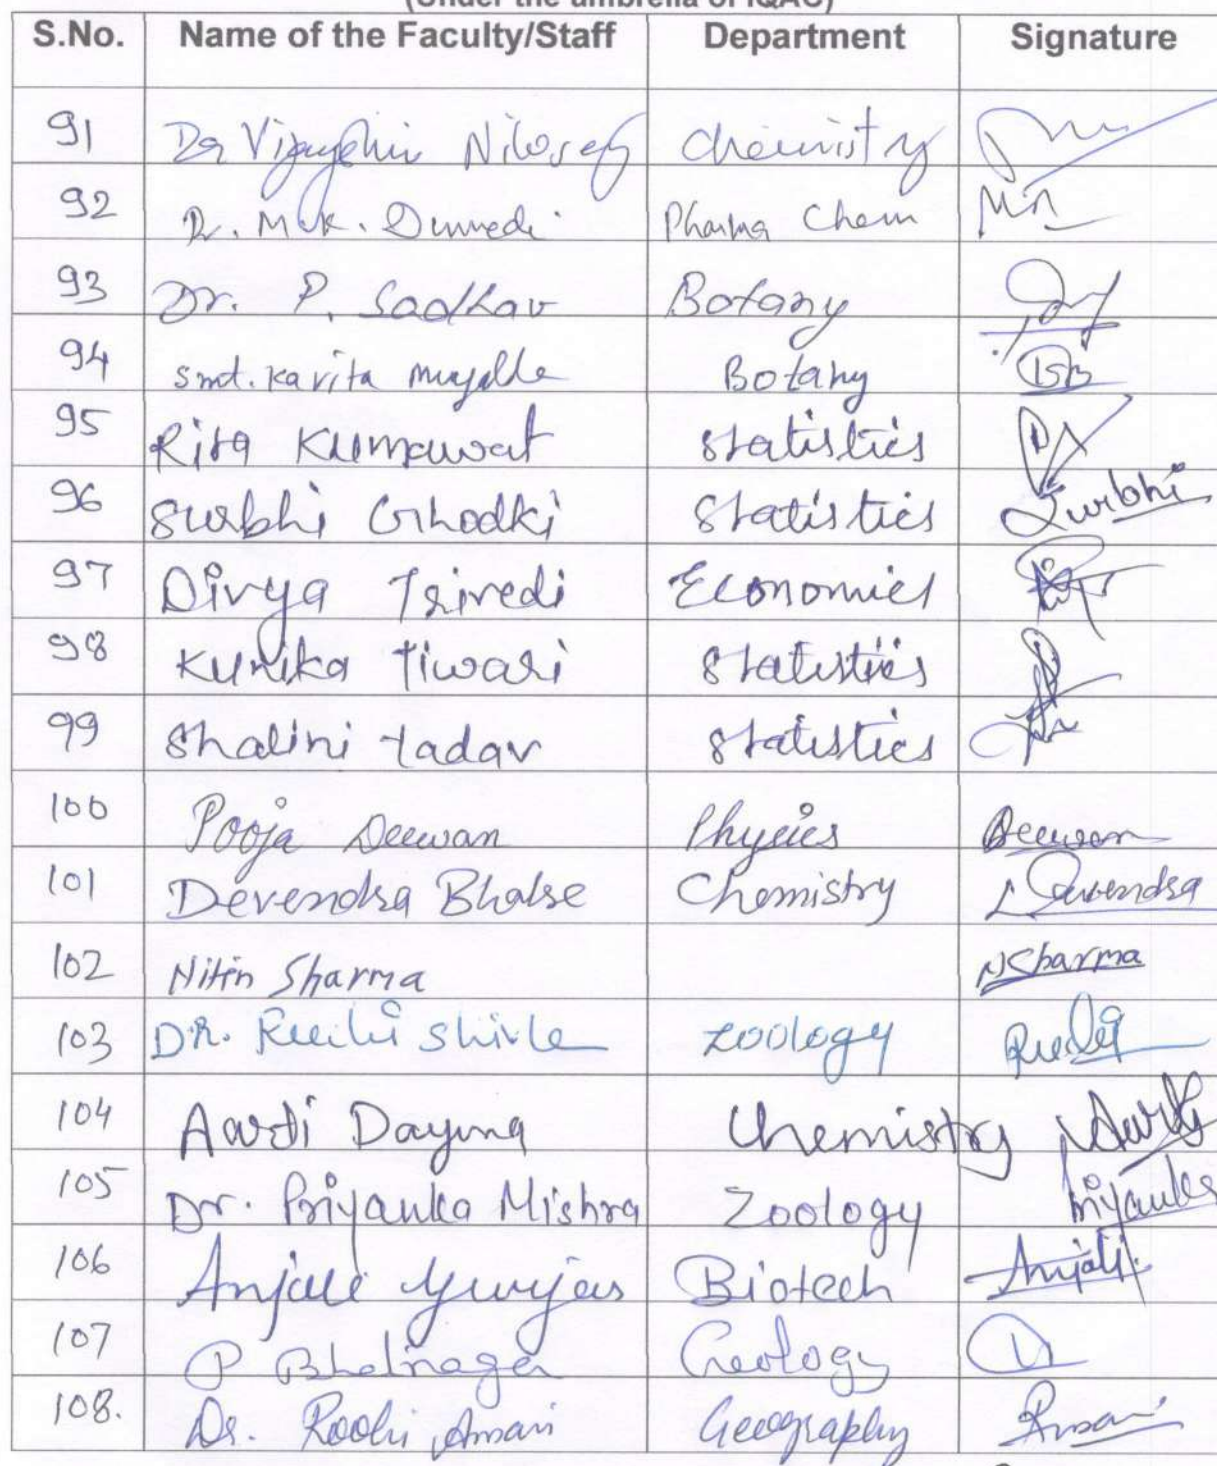 (Under the umbrella of IQAC)
S.No. Name of the Faculty/Staff Department Signature
91 Dr Chemistry
92 Dr. M.K. Pharma Chem
93 Dr. P. Sadhav Botany
94 Smt. Kavita Botany
95 Rita Kumawat Statistics
96 Surbhi Ghodki Statistics Surbhi
97 Divya Trivedi Economics
98 Kunika Tiwari Statistics
99 Shalini Yadav Statistics
100 Pooja Deewan Physics Deewan
101 Devendra Bhalse Chemistry Devendra
102 Nitin Sharma NSharma
103 DR. Zoology
104 Aarti Dayma Chemistry Aarti
105 Dr. Priyanka Mishra Zoology Priyanka
106 Anjali Biotech Anjali
107 P Bhatnagar Geology
108. Dr. Roohi Ansari Geography Ansari